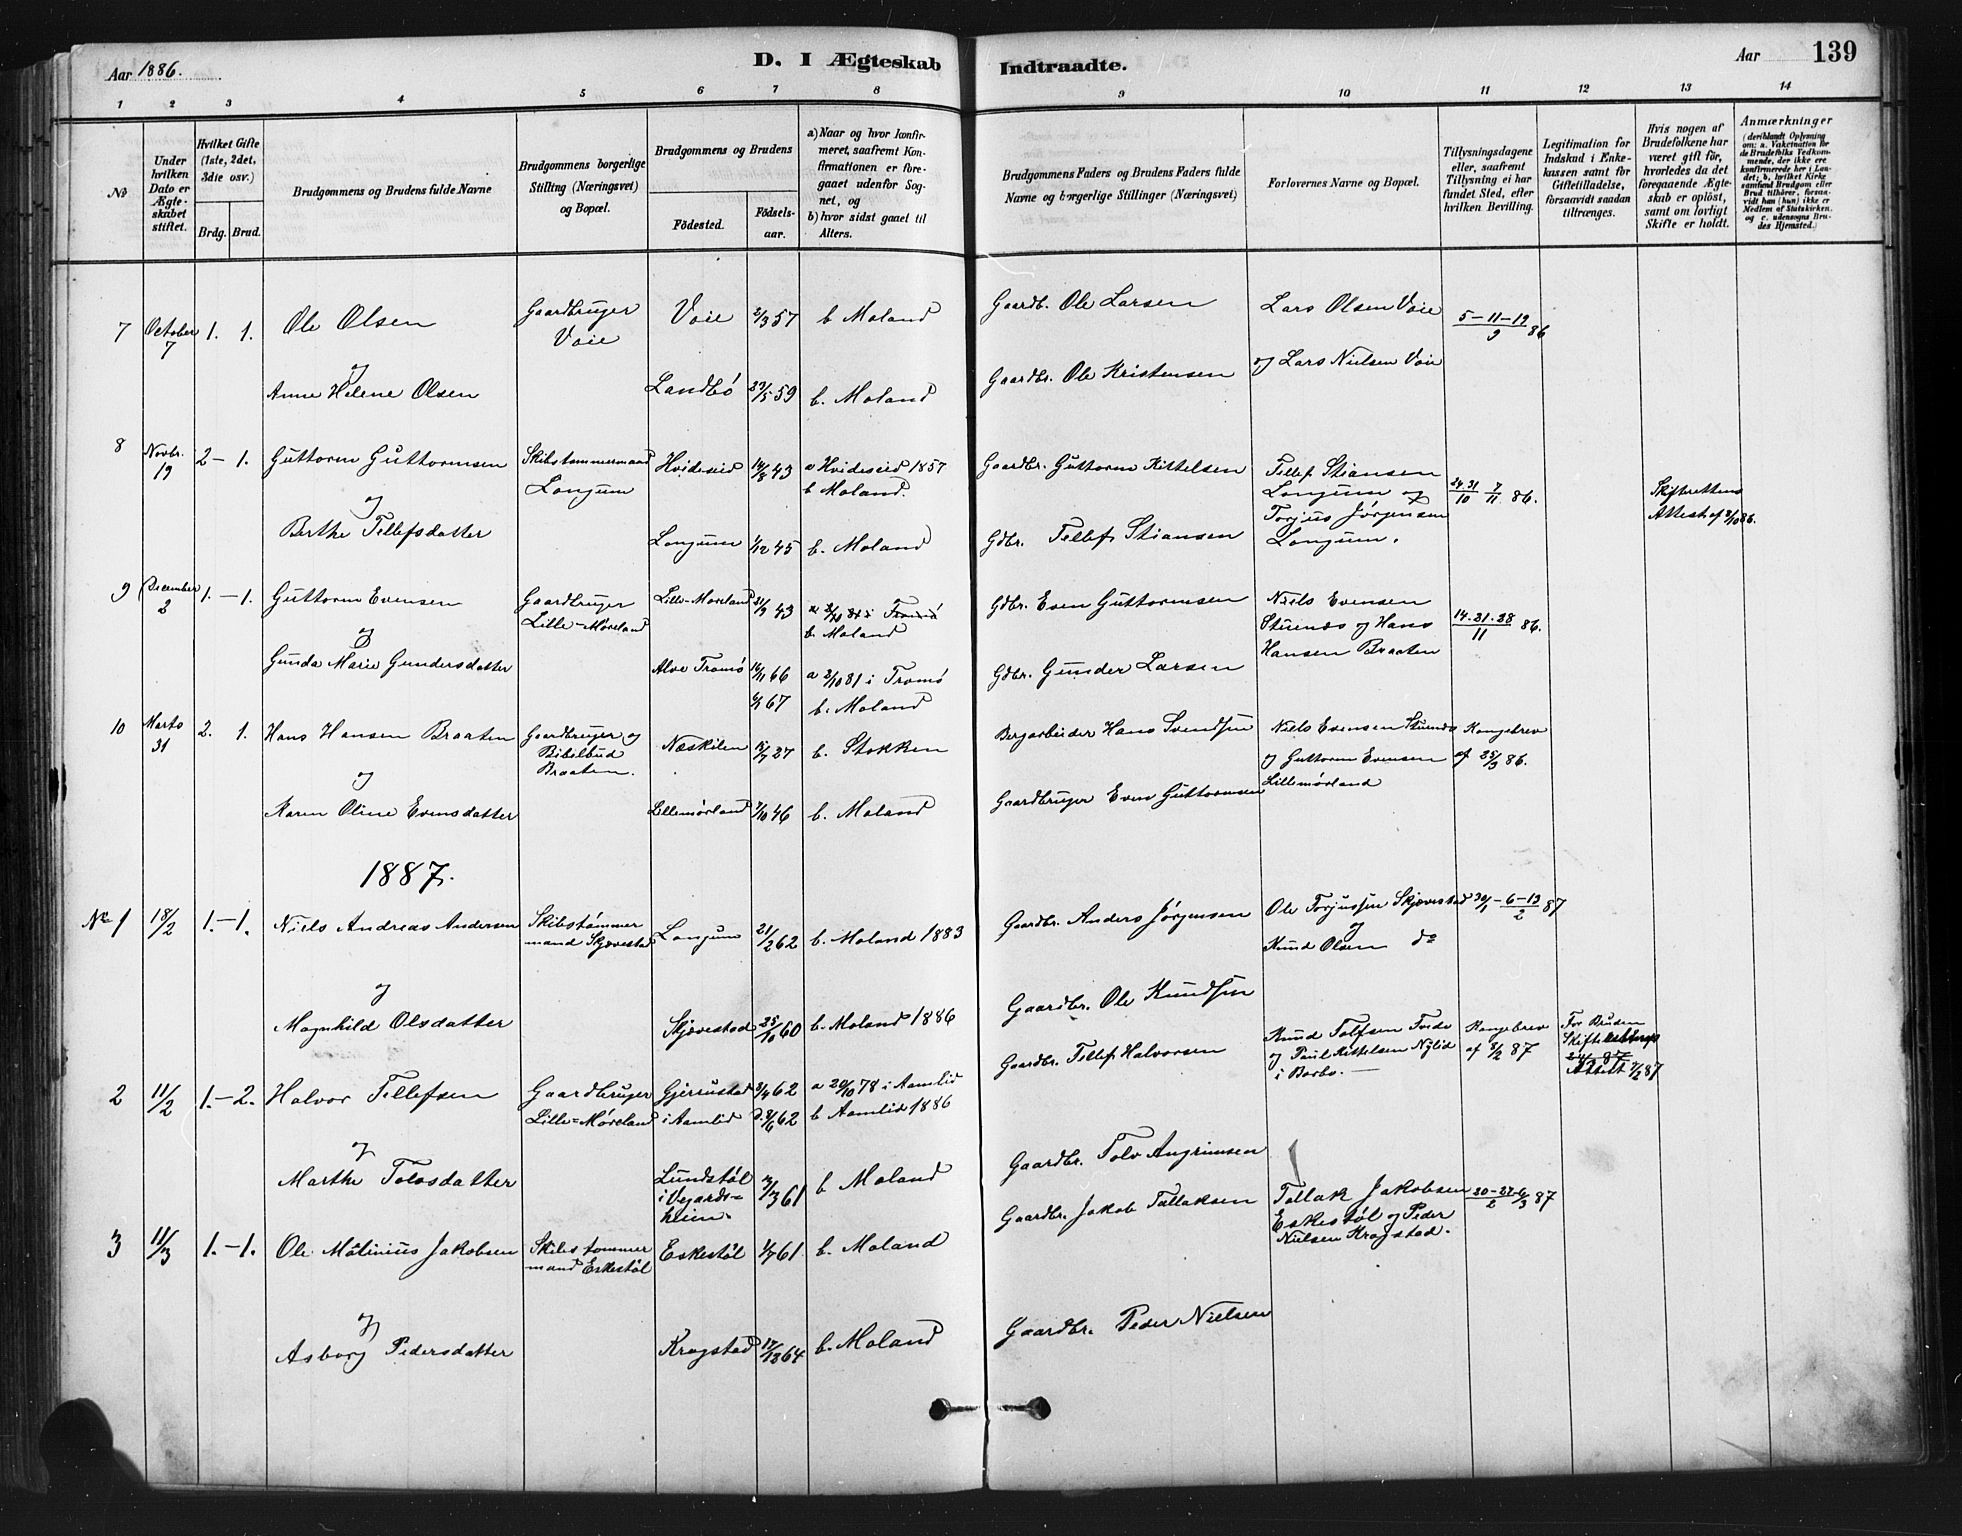 Aar 1886.
D. I Ægteskab Indtraadte.
Aar 139
1 2 3 4 5 6 7 8 9 10 11 12 13 14
No
Under hvilken Dato er Ægteskabet stiftet.
Hvilket Gifte (1ste, 2det, 3die osv.)
Brdg. Brud.
Brudgommens og Brudens fulde Navne
Brudgommens borgerlige Stilling (Næringsvei) og Bopæl.
Brudgommens og Brudens
Födested.
Födselsaar.
a) Naar og hvor konfirmeret, saafremt Konfirmationen er foregaaet udenfor Sognet, og
b) hvor sidst gaaet til Alters.
Brudgommens Faders og Brudens Faders fulde Navne og borgerlige Stillinger (Næringsvei)
Forlovernes Navne og Bopæl.
Tillysningsdagene eller, saafremt Tillysning ei har fundet Sted, efter hvilken Bevilling.
Legitimation for Indskud i Enkekassen samt for Giftetilladelse, forsaavidt saadan tiltrænges.
Hvis nogen af Brudefolkene har været gift för, hvorledes da det foregaaende Ægteskab er oplöst, samt om lovligt Skifte er holdt.
Anmærkninger
(deriblandt Oplysning om: a. Vakcination for de Brudefolks Vedkommende, der ikke ere konfirmerede her i Landet; b. hvilket Kirkesamfund Brudgom eller Brud tilhörer, forsaavidt han (hun) ikke er Medlem af Statskirken. og c. udensogns Brudes Hjemsted.)
7 October 7 1. 1. Ole Olsen Gaardbruger Voie Voie 2/3 57 b Moland Gaardb. Ole Larsen Lars Olsen Voie 5-11-19/9 86
og Lars Nielsen Voie
og Anne Helene Olsen Landbö 27/5 59 b. Moland Gaardbr. Ole Kristensen
8 Novbr. 19 2 - 1. Guttorm Guttormsen Skibstømmermand Longum Hvideseid 14/8 43 a Hvideseid 1857
b Moland. Gaardbr. Guttorm Kittelsen Tellef Stiansen Longum og Torjus Jörgensen Longum. 24.31/10 7/11 86. Skifterettens Attest af 2/10 86.
og Berthe Tellefsdatter Longum 1/12 45 b. Moland Gdbr. Tellef Stiansen
9 December 2 1. - 1. Guttorm Evensen Gaardbruger Lille-Møreland Lille-Møreland 21/9 43 b. Moland Gdbr. Even Guttormsen Niels Evensen Stuenæs og Hans Hansen Braaten 14.21.28/11 86.
og Gunda Marie Gundersdatter Alve Tromö 16/11 66 a 2/10 81 i Tromö
67 b. Moland Gdbr. Gunder Larsen
10 Marts 31 2. 1. Hans Hansen Braaten Gaardbruger og Bibelbud Braaten. Næskilen 15/7 27 b. Stokken Bergarbeider Hans Svendsen Niels Evensen Stuenæs og Guttorm Evensen Lillemørland Kongebrev af 25/3 86.
og Karen Oline Evensdatter Lillemørland 7/10 46 b. Moland Gaardbruger Even Guttormsen
1887.
No 1 18/2 1. - 1. Niels Andreas Andersen Skibstømmermand Skjævestad Longum 21/2 62 b. Moland 1883 Gaardbr. Anders Jørgensen Ole Torjussen Skjævestad og Knud Olsen do 30/1 - 6 - 13/2 87
og Magnhild Olsdatter Skjævestad 25/10 60 b. Moland 1886 Gaardbr. Ole Knudsen
2 11/2 1. - 2. Halvor Tellefsen Gaardbruger Lille-Møreland Gjerrustad i Aamlid 3/4 62 d. 8/6 62 a 20/10 78 i Aamlid
b Aamlid 1886 Gaardbr. Tellef Halvorsen Knud Tolfsen Tvede og Paul Kittelsen Nylid i Barbo. Kongebrev af 8/2 87 For Bruden Skifteretten Attest 7/2 87
og Marthe Tolvsdatter Lundstøl i Vegardsheim. 3/3 61 b Moland Gaardbr. Tolv Angrimsen
3 11/3 1. - 1. Ole Mathinius Jakobsen Skibstømmermand Eskestöl Eskestöl 1/7 61 b. Moland Gaardbr. Jakob Tallaksen Tallak Jakobsen Eskestöl og Peder Nielsen Kragstad. 20-27/2 6/3 87
og Asborg Pedersdatter Kragstad 17/12 64 b. Moland Gaardbr. Peder Nielsen